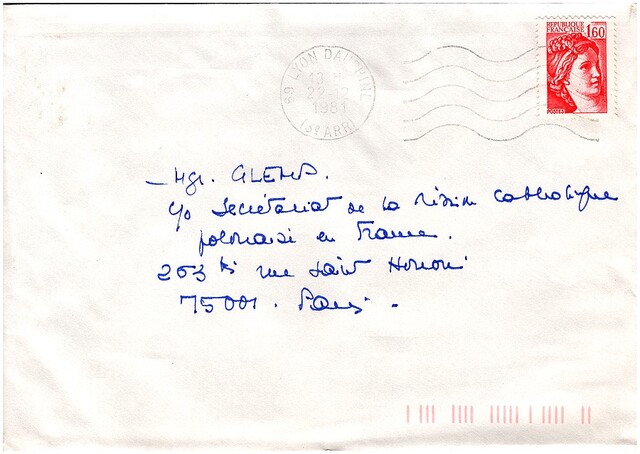 REPUBLIQUE
FRANÇAISE 1,60
69 LYON DAUPHINE
18 H
22-12
1981
(3e ARR)
Mgr. GLEMP.
c/o Secrétariat de la Mission Catholique
polonaise en France.
263 bis rue Saint Honoré
75001. Paris.